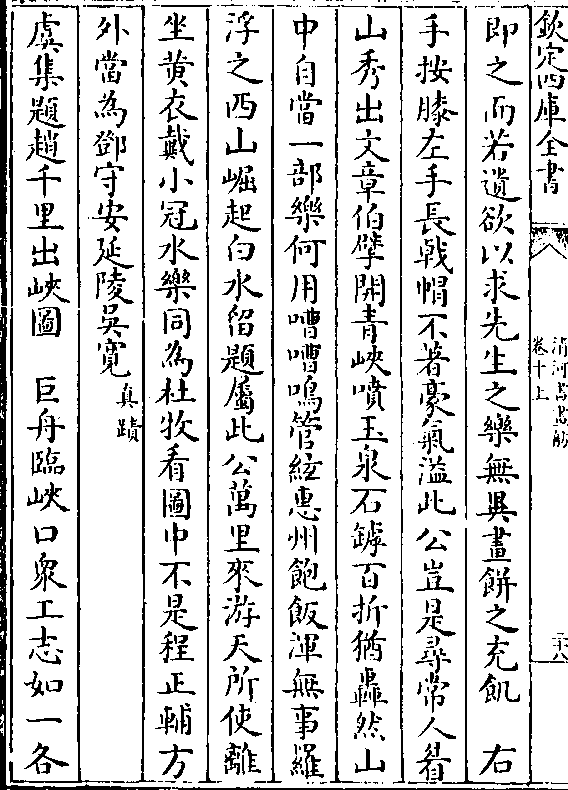 欽定四庫全書
清河書畫舫
卷十上
三十八
即之而若遺欲以求先生之樂無異畫餅之充飢　右
手按膝左手長戟帽不著豪氣溢此公豈是尋常人眷
山秀出文章伯擘開青峽噴玉泉石罅百折猶轟然山
中自當一部樂何用嘈嘈鳴管絃惠州飽飯渾無事羅
浮之西山崛起白水留題屬此公萬里來游天所使離
坐黄衣戴小冠水樂同為杜牧看圖中不是程正輔方
外當為鄧守安延陵吳寛真蹟
虞集題趙千里出峽圖　巨舟臨峽口衆工志如一各